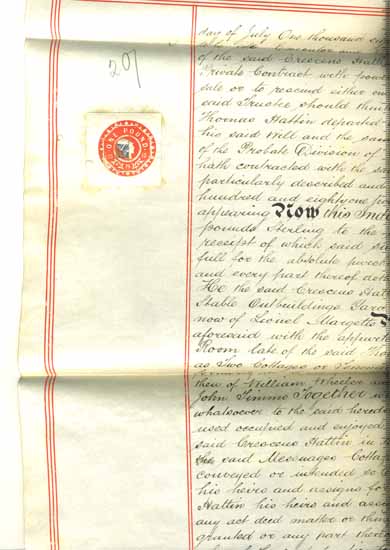 207
ONE POUND
day of July One thousand
of the said Crescens Hatt
Private Contract with power
sale or to rescind either
said Trustee should think
Thomas Hattin departed
his said Will and the said
of the Probate Division of
hath contracted with the
particularly described and
hundred and eighty one
appearing Now this Inde
pounds Sterling to the
receipt of which said
full for the absolute purch
and every part thereof
He the said Crescens Hatt
Stable Outbuildings
now of Lionel Margetts
aforesaid with the appurte
Room late of the said
as Two Cottages or
then of William Wheeler
John Timms Together
whatsoever to the said hered
used occupied and enjoyed
said Crescens Hattin in
the said Messuages Cottag
conveyed or intended so
his heirs and assigns for
Hattin his heirs and assi
any act deed matter or thin
granted or any part there